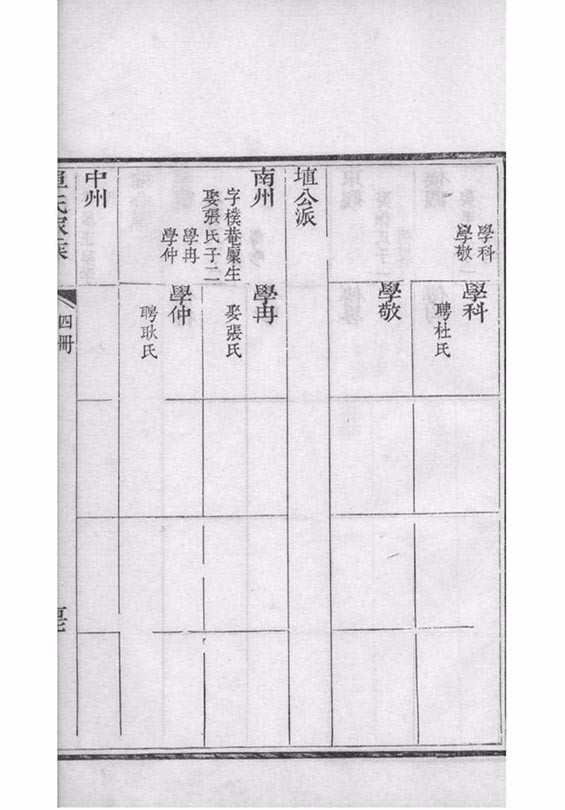 學科
學敬
學科
聘杜氏
學敬
埴公派
南州
字樸菴廩生
娶張氏子二
學冉
學仲
學冉
娶張氏
學仲
聘耿氏
中州
氏家乘
四冊